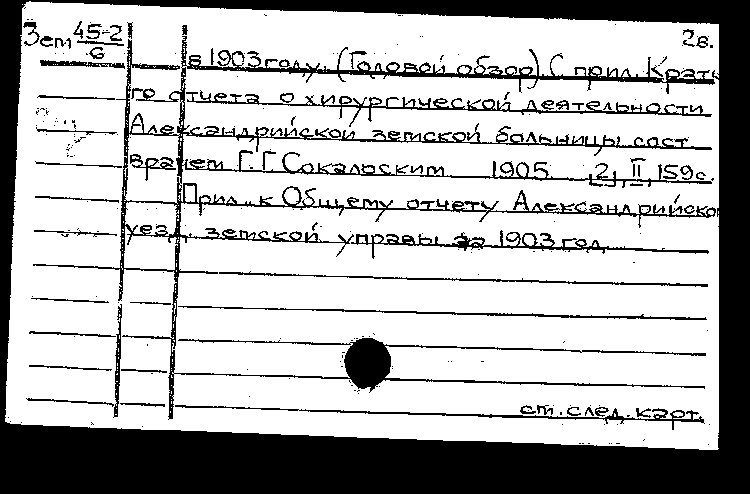 Зем 45-2/6 2в.
в 1903 году. (Годовой обзор) С прил. Кратк
го отчета о хирургической деятельности
Александрийской земской больницы сост.
врачем Г. Г. Сокальским 1905 [2], II, 159 с.
Прил. к Общему отчету Александрийской
уезд. земской управы за 1903 год.
ст. след. карт.